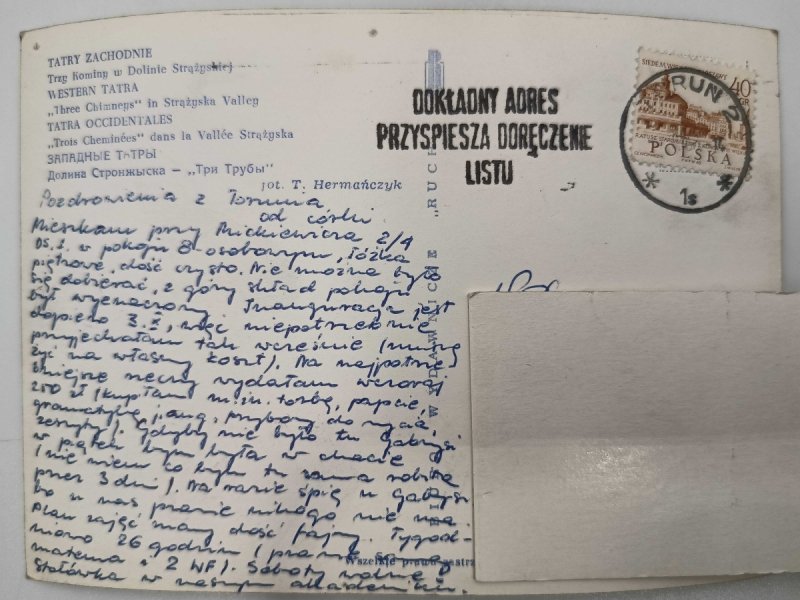 TATRY ZACHODNIE
Trzy Kominy w Dolinie Strążyskiej
WESTERN TATRA
„Three Chimneys" in Strążyska Valley
TATRA OCCIDENTALES
„Trois Cheminées" dans la Vallée Strążyska
ЗАПАДНЫЕ ТАТРЫ
Долина Стронжыска — „Три Трубы"
fot. T. Hermańczyk
DOKŁADNY ADRES
PRZYSPIESZA DORĘCZENIE
LISTU
40
GR
POLSKA
RUŃ 2
1s
Pozdrowienia z Torunia
od córki
Mieszkam przy Mickiewicza 2/4
os. 1. w pokoju 8-osobowym, łóżka
piętrowe, dość czysto. Nie można było
się dobierać, z góry skład pokoju
był wyznaczony. Inauguracja jest
dopiero 3.X, więc niepotrzebnie
przyjechałam tak wcześnie (muszę
żyć na własny koszt). Na najpotrze-
bniejsze rzeczy wydałam wczoraj
250 zł (kupiłam m.in. torbę, papcie,
gramatykę j. ang., przybory do mycia,
zeszyty). Gdyby nie było tu Gabrysi
w piątek bym była w chacie
(nie wiem co bym tu sama robiła
przez 3 dni). Na razie śpię u Gabrysi
bo u nas prawie nikogo nie ma.
Plan zajęć mamy dość fajny. Tygod-
niowo 26 godzin (prawie sama
matema i 2 WF). Soboty wolne
Stołówka w naszym akademiku.
WYDAWNICZE „RUCH
Wszelkie prawa zastrz